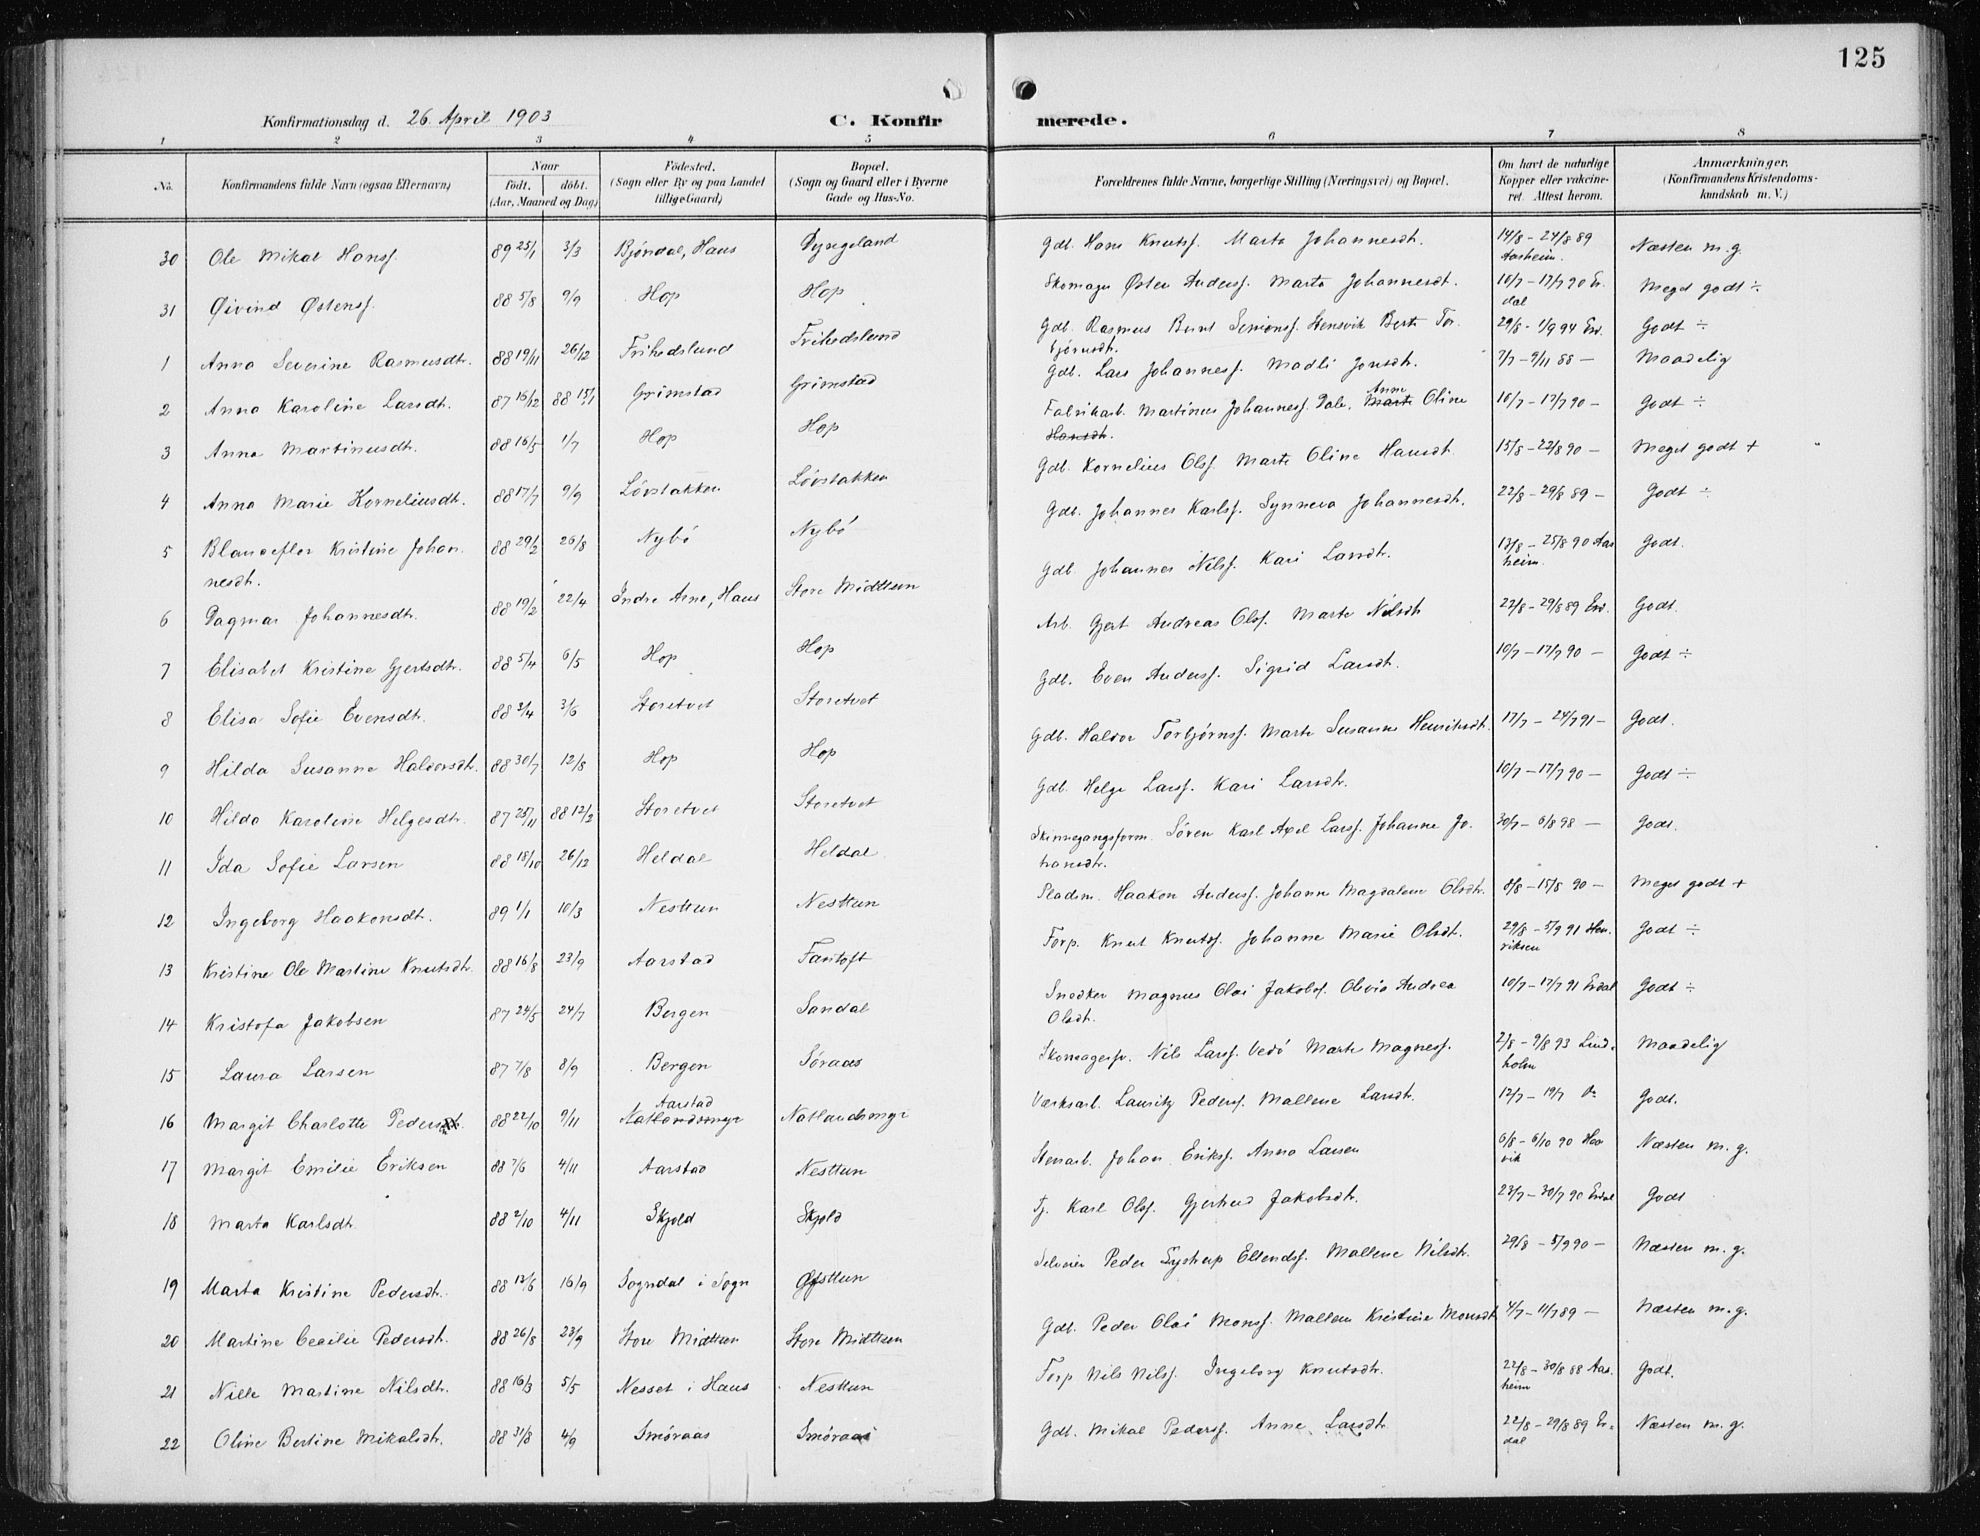 125
Konfirmationsdag d. 26. April 1903
C. Konfir merede.
1 2 3 4 5 6 7 8
No. Konfirmandens fulde Navn (ogsaa Efternavn) Naar födt. döbt. (Aar, Maaned og Dag) Födested. (Sogn eller By og paa Landet tillige Gaard) Bopæl. (Sogn og Gaard eller i Byerne Gade og Hus-No. Forældrenes fulde Navne, borgerlige Stilling (Næringsvei) og Bopæl. Om havt de naturlige Kopper eller vakcineret. Attest herom. Anmærkninger. (Konfirmandens Kristendomskundskab m. V.)
30 Ole Mikal Hansf. 89 25/1 3/3 Bjøndal, Haus Dyngeland Gdb. Hans Knutsf. Marta Johannesdt. 14/8 - 24/8 89 Aasheim. Næsten m. g.
31 Øivind Østensf. 88 5/8 9/9 Hop Hop Skomager Østen Andersf. Marta Johannesdt. 10/7 - 17/7 90 Erdal Meget godt ÷
1 Anna Severine Rasmusdtr. 88 19/11 26/12 Frihedslund Frihedslund Gdb. Rasmus Bernt Simonsf. Stensvik Berte Torbjørnsdt. 29/8 - 1/9 94 Erd. Godt ÷
2 Anna Karoline Larsdt. 87 16/12 88 15/1 Grimstad Grimstad Gdb. Lars Johannesf. Madli Jonsdt. 7/7 - 9/11 88 — Maadelig
3 Anna Martinusdt. 88 16/5 1/7 Hop Hop Fabrikarb. Martinus Johannesf. Dale. Marte Anne Oline Hansdt. 10/7 - 17/7 90 — Godt ÷
4 Anna Marie Korneliusdt. 88 17/7 9/9 Løvstakken Løvstakken Gdb. Kornelius Olsf. Marte Oline Hansdt. 15/8 - 22/8 90 — Meget godt +
5 Blanceflor Kristine Johannesdt. 88 29/2 26/8 Nybö Nybö Gdb. Johannes Karlsf. Synneva Johannesdt. 22/8 - 29/8 89 — Godt ÷
6 Dagmar Johannesdt. 88 19/2 22/4 Indre Arne, Haus Store Midttun Gdb. Johannes Nilsf. Kari Larsdt. 13/8 - 25/8 90 Aasheim. Godt.
7 Elisabet Kristine Gjertsdtr. 88 5/4 6/5 Hop Hop Arb. Gjert Andreas Olsf. Marte Nilsdt 22/8 - 29/8 89 Erd. Godt.
8 Elisa Sofie Evensdt. 88 3/4 3/6 Storetvet Storetvet Gdb. Even Andersf. Sigrid Larsdt. 10/7 - 17/7 90 — Godt ÷
9 Hilda Susanna Haldorsdt. 88 30/7 12/8 Hop Hop Gdb. Haldor Torbjørnsf. Marte Susanne Henriksdt. 17/7 - 24/7 91 — Godt.
10 Hilda Karoline Helgesdtr. 87 25/11 88 12/2 Storetvet Storetvet Gdb. Helge Larsf. Kari Larsdt. 10/7 - 17/7 90 — Godt ÷
11 Ida Sofie Larsen 88 18/10 26/12 Heldal Heldal Skinnegangsform. Søren Karl Axel Larsf. Johanne Johansdt. 30/7 - 6/8 98 — Godt.
12 Ingeborg Haakonsdt. 89 1/1 10/3 Nesttun Nesttun Pladsm. Haakon Andersf. Johanne Magdalene Olsdt. 8/8 - 15/8 90 — Meget godt +
13 Kristine Ole Martine Knutsdt. 88 16/8 23/9 Aarstad Fantoft Torp. Knut Knutsf. Johanne Marie Olsdt. 29/8 - 5/9 91 Henriksen Godt ÷
14 Kristofa Jakobsen 87 24/5 24/7 Bergen Sandal Snedker Magnus Olai Jakobsf. Olivia Andrea Olsdt. 10/7 - 17/7 91 Erdal Godt ÷
15 Laura Larsen 87 7/8 8/9 Bergen Søraas Skomagersv. Nils Larsf. Vedö Marte Magnesf. 2/8 - 9/8 93 Lindholm Maadelig
16 Margit Charlotte Pedersdt. 88 22/10 9/11 Aarstad Natlandsmyr Natlandsmyr Værksarb. Lauritz Pedersf. Mallene Larsdt. 12/7 - 19/7 Godt.
17 Margit Emilie Eriksen 88 7/6 4/11 Aarstad Nesttun Stenarb. Johan Eriksf. Anna Larsen 6/8 - 6/10 90 Haavik Næsten m. g.
18 Marta Karlsdt. 88 2/10 4/11 Skjold Skjold Tj. Karl Olsf. Gjertrud Jakobsdt. 23/7 - 30/7 90 Erdal Godt
19 Marta Kristine Pedersdt. 88 12/6 16/9 Sogndal i Sogn Øfsttun Selveier Peder Ellendsf. Mallene Nilsdt. 29/8 - 5/9 90 — Næsten m. g.
20 Martine Cecilie Pedersdt. 88 26/8 23/9 Store Midttun Store Midttun Gdb. Peder Olai Monsf. Mallene Kristine Monsdt 4/7 - 11/7 89 — Næsten m. g.
21 Nille Martine Nilsdt. 88 16/3 5/5 Nesset i Haus Nesttun Torp Nils Nilsf. Ingeborg Knutsdt. 22/8 - 30/8 88 Aasheim Godt.
22 Oline Bertine Mikalsdt. 88 31/8 4/9 Smøraas Smøraas Gdb. Mikal Pedersf. Anne Larsdt. 22/8 - 29/8 89 Erdal Næsten m. g.